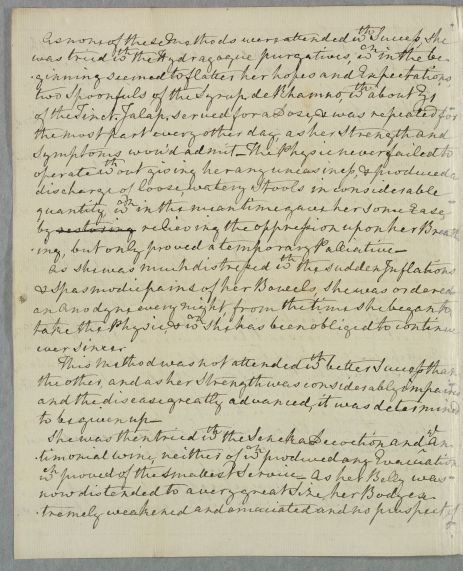 As none of these Methods were attended wth Success, she
was tried wth the Hydragogue purgatives, wch in the be-
-ginning seemed to flatter her hopes and Expectations
two Spoonfuls of the Syrup. de Rhamno, wth about ʒi
of the Tinct. Jalap, served for a Dose, & was repeated for
the most part every other day as her Strength and
Symptoms would admit_ This Physic never failed to
operate wthout giving her any uneasiness, & produced a
discharge of loose, watery Stools in considerable
quantity, wch in the mean time gave her some Ease,
by restoring relieving the oppression upon her Breath
-ing, but only proved a temporary Palliative_
As she was much distressed wth the sudden Inflations
& spasmodic pains of her Bowels, she was ordered
an Anodyne every night from the time she began to
take the Physic, & wch she has been obliged to continue
ever since.
This method was not attended wth better Success than
the other, and as her Strength was considerably impaired
and the disease greatly advanced, it was determined
to be given up_
She was then tried wth the Seneka Decoction and An-
-timonial wine, neither of wch produced any Evacuation
or proved of the smallest Service_ As her Belly was
now distended to a very great Size, her Body ex-
-tremely weakened and emaciated and no prospect of